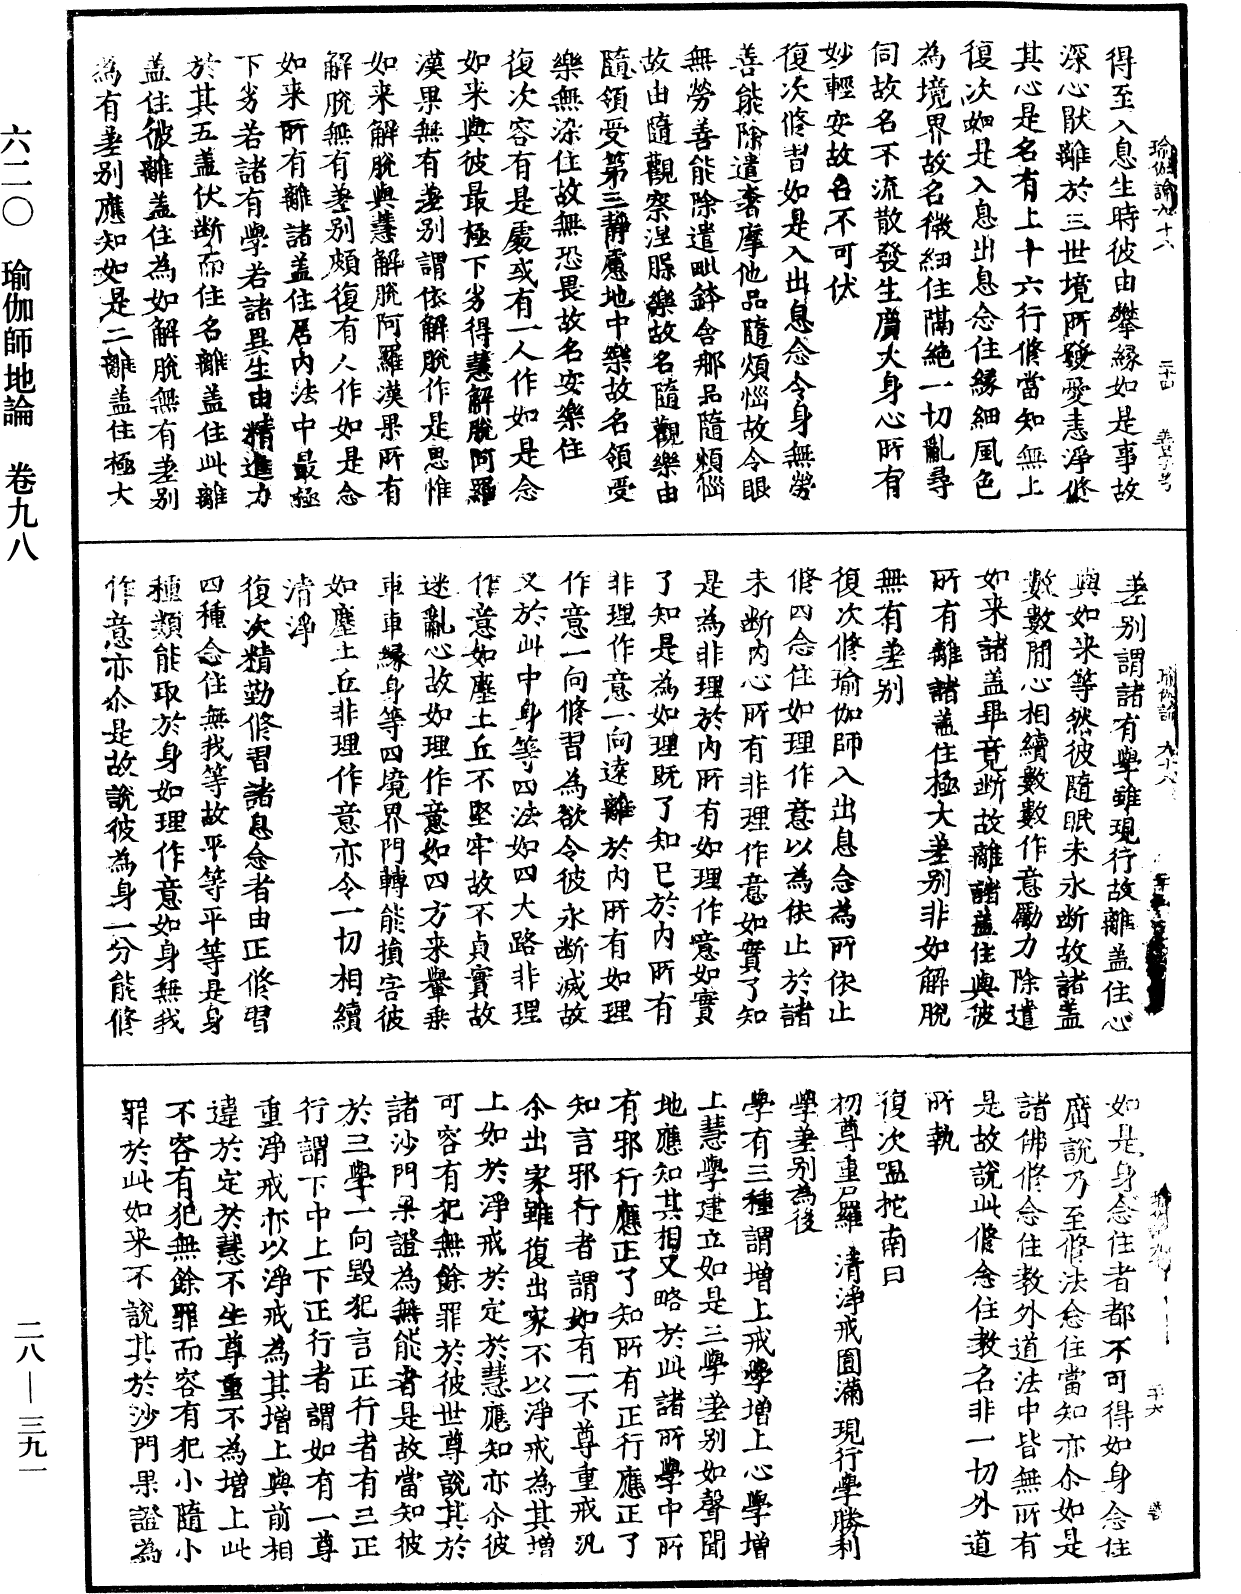 六二〇　瑜伽師地論　卷九八
二八—三九一
得至入息生時彼由攀緣如是事故
深心猒離於三世境所發愛恚淨修
其心是名有上十六行修當知無上
復次如是入息出息念住緣細風色
為境界故名微細住隔絕一切亂尋
伺故名不流散發生廣大身心所有
妙輕安故名不可伏
復次修習如是入出息念令身無勞
善能除遣奢摩他品隨煩惱故令眼
無勞善能除遣毗鉢舍那品隨煩惱
故由隨觀察涅槃樂故名隨觀樂由
隨領受第三靜慮地中樂故名領受
樂無染住故無恐畏故名安樂住
復次容有是處或有一人作如是念
如来與彼最極下劣得慧解脫阿羅
漢果無有差別謂依解脫作是思惟
如来解脫與慧解脫阿羅漢果所有
解脫無有差別頗復有人作如是念
如来所有離諸盖住居內法中最極
下劣若諸有學若諸異生由精進力
於其五盖伏斷而住名離盖住此離
盖住彼離盖住為如解脫無有差別
為有差別應知如是二離盖住極大
差別謂諸有學雖現行故離盖住心
與如来等然彼隨眠未永斷故諸盖
數數間心相續數數作意勵力除遣
如来諸盖畢竟斷故離諸盖住與彼
所有離諸盖住極大差別非如解脫
無有差別
復次修瑜伽師入出息念為所依止
修四念住如理作意以為依止於諸
未斷內心所有非理作意如實了知
是為非理於內所有如理作意如實
了知是為如理既了知已於內所有
非理作意一向遠離於內所有如理
作意一向修習為欲令彼永斷滅故
又於此中身等四法如四大路非理
作意如塵土丘不堅牢故不貞實故
迷亂心故如理作意如四方来轝乗
車車緣身等四境界門轉能損害彼
如塵土丘非理作意亦令一切相續
清淨
復次精勤修習諸息念者由正修習
四種念住無我等故平等平等是身
種類能取於身如理作意如身無我
作意亦尒是故說彼為身一分能修
如是身念住者都不可得如身念住
廣說乃至修法念住當知亦尒如是
諸佛修念住教外道法中皆無所有
是故說此修念住教名非一切外道
所執
復次嗢柁南曰
初尊重尸羅　清淨戒圓滿　現行學勝利
學差別為後
學有三種謂增上戒學增上心學增
上慧學建立如是三學差別如聲聞
地應知其相又略於此諸所學中所
有邪行應正了知所有正行應正了
知言邪行者謂如有一不尊重戒汎
尒出家雖復出家不以淨戒為其增
上如於淨戒於定於慧應知亦尒彼
可容有犯無餘罪於彼世尊說其於
諸沙門果證為無能者是故當知彼
於三學一向毀犯言正行者有三正
行謂下中上下正行者謂如有一尊
重淨戒亦以淨戒為其增上與前相
違於定於慧不生尊重不為增上此
不容有犯無餘罪而容有犯小隨小
罪於此如来不說其於沙門果證為